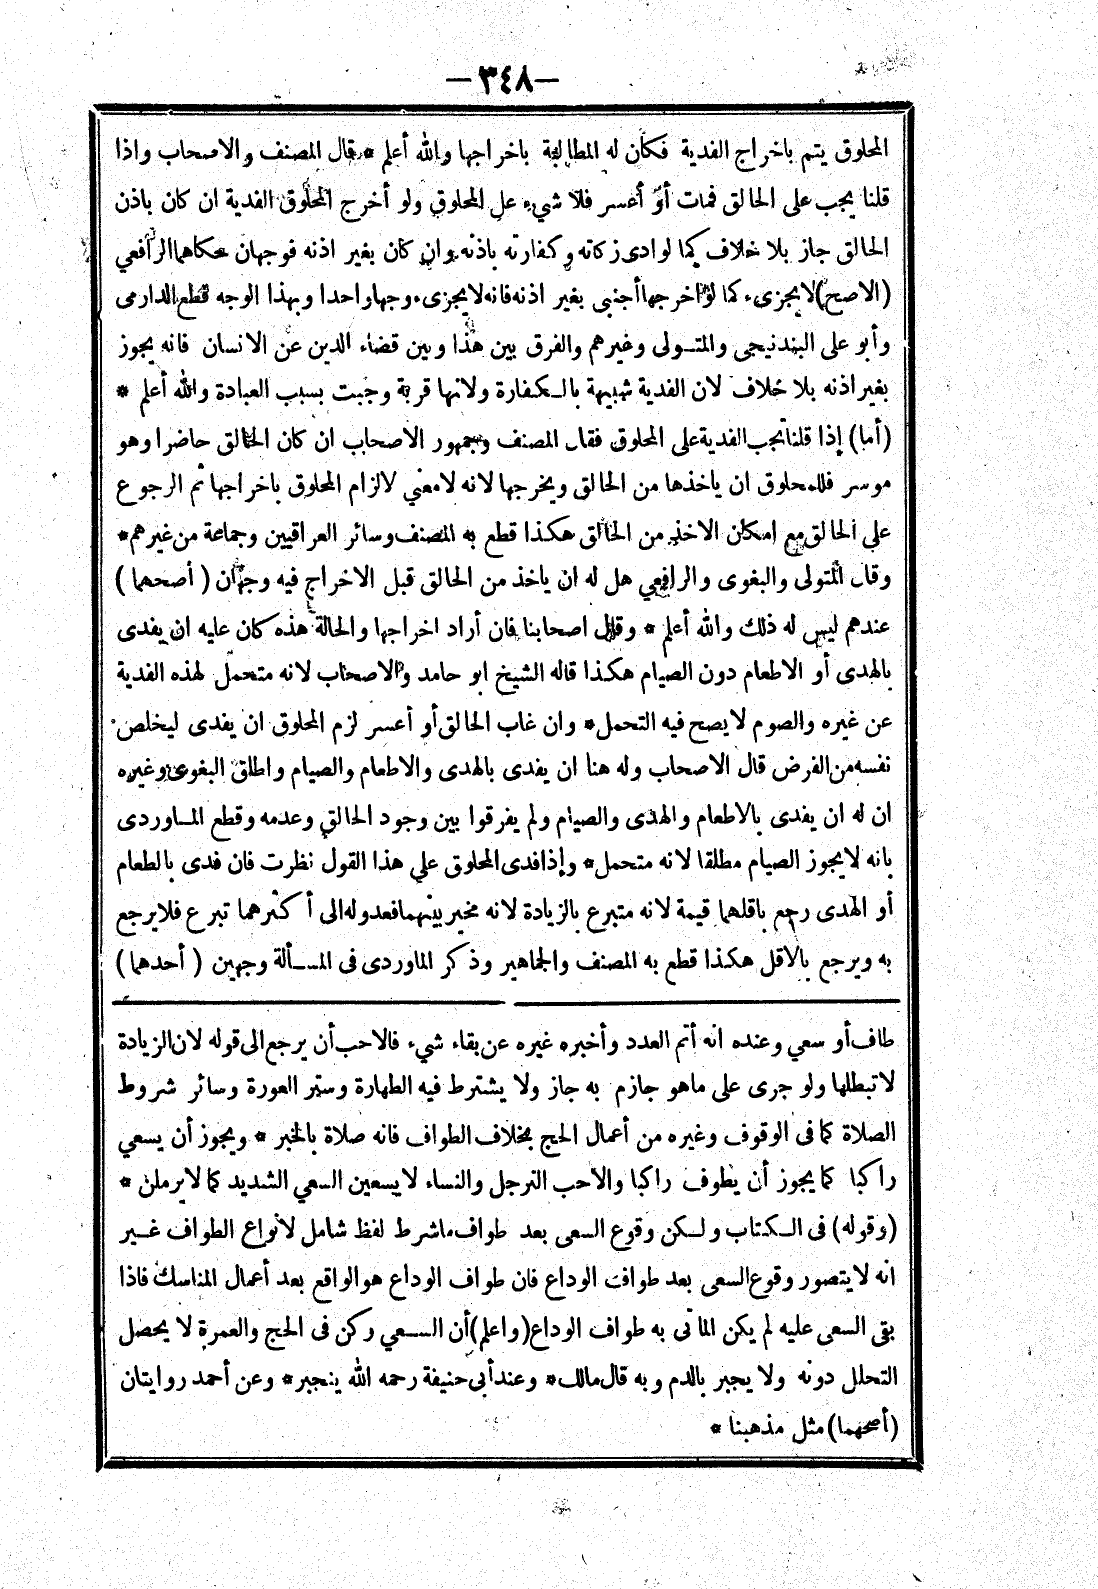 —٣٤٨—
المحلوق يتم باخراج الفدية فكأن له المطالبة باخراجها والله أعلم * قال المصنف والاصحاب واذا
قلنا يجب على الحالق فمات أو أعسر فلا شيء على المحلوق ولو أخرج المحلوق الفدية ان كان باذن
الحالق جاز بلا خلاف كما لو ادى زكاته وكفارته باذنه وان كان بغير اذنه فوجهان حكاهما الرافعي
(الاصح) لا يجزىء كما لو اخرجها أجنبى بغير اذنه فانه لا يجزىء وجها واحدا وبهذا الوجه قطع الدارمى
وأبو على البندنيجى والمتولى وغيرهم والفرق بين هذا وبين قضاء الدين عن الانسان فانه يجوز
بغير اذنه بلا خلاف لان الفدية شبيهة بالكفارة ولانها قربة وجبت بسبب العبادة والله أعلم *
(أما) إذا قلنا تجب الفدية على المحلوق فقال المصنف وجمهور الاصحاب ان كان الحالق حاضرا وهو
موسر فللمحلوق ان ياخذها من الحالق ويخرجها لانه لا معني لالزام المحلوق باخراجها ثم الرجوع
على الحالق مع امكان الاخذ من الحالق هكذا قطع به المصنف وسائر العراقيين وجماعة من غيرهم *
وقال المتولى والبغوى والرافعي هل له ان ياخذ من الحالق قبل الاخراج فيه وجهان (أصحهما)
عندهم ليس له ذلك والله أعلم * وقال اصحابنا فان أراد اخراجها والحالة هذه كان عليه ان يفدى
بالهدى أو الاطعام دون الصيام هكذا قاله الشيخ ابو حامد والاصحاب لانه متحمل لهذه الفدية
عن غيره والصوم لا يصح فيه التحمل * وان غاب الحالق أو أعسر لزم المحلوق ان يفدى ليخلص
نفسه من الفرض قال الاصحاب وله هنا ان يفدى بالهدى والاطعام والصيام واطلق البغوى وغيره
ان له ان يفدى بالاطعام والهدى والصيام ولم يفرقوا بين وجود الحالق وعدمه وقطع الماوردى
بانه لا يجوز الصيام مطلقا لانه متحمل * وإذا فدى المحلوق علي هذا القول نظرت فان فدى بالطعام
أو الهدى رجع باقلهما قيمة لانه متبرع بالزيادة لانه مخير بينهما فعدوله الى أكثرهما تبرع فلا يرجع
به ويرجع بالاقل هكذا قطع به المصنف والجماهير وذكر الماوردى فى المسألة وجهين (أحدهما)
طاف أو سعي وعنده انه أتم العدد وأخبره غيره عن بقاء شيء فالاحب أن يرجع الى قوله لان الزيادة
لا تبطلها ولو جرى على ما هو جازم به جاز ولا يشترط فيه الطهارة وستر العورة وسائر شروط
الصلاة كما فى الوقوف وغيره من أعمال الحج بخلاف الطواف فانه صلاة بالخبر * ويجوز أن يسعي
راكبا كما يجوز أن يطوف راكبا والاحب الترجل والنساء لا يسعين السعي الشديد كما لا يرملن *
(وقوله) فى الكتاب ولكن وقوع السعى بعد طواف ما شرط لفظ شامل لأنواع الطواف غير
انه لا يتصور وقوع السعى بعد طواف الوداع فان طواف الوداع هو الواقع بعد أعمال المناسك فاذا
بقى السعى عليه لم يكن المأتى به طواف الوداع (واعلم) أن السعي ركن فى الحج والعمرة لا يحصل
التحلل دونه ولا يجبر بالدم وبه قال مالك * وعند أبى حنيفة رحمه الله ينجبر * وعن أحمد روايتان
(أصحهما) مثل مذهبنا *